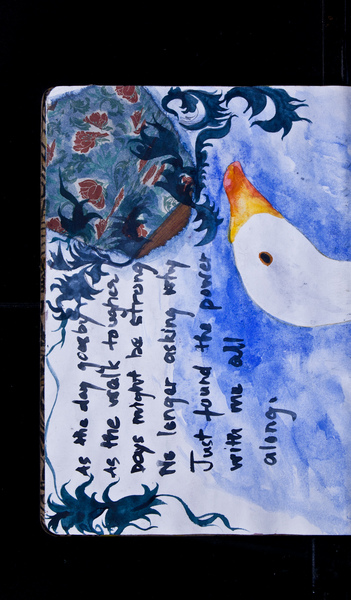 As the day goes by
As the walk toughes
Days might be strong
No longer asking why
Just found the power
with me all
along.